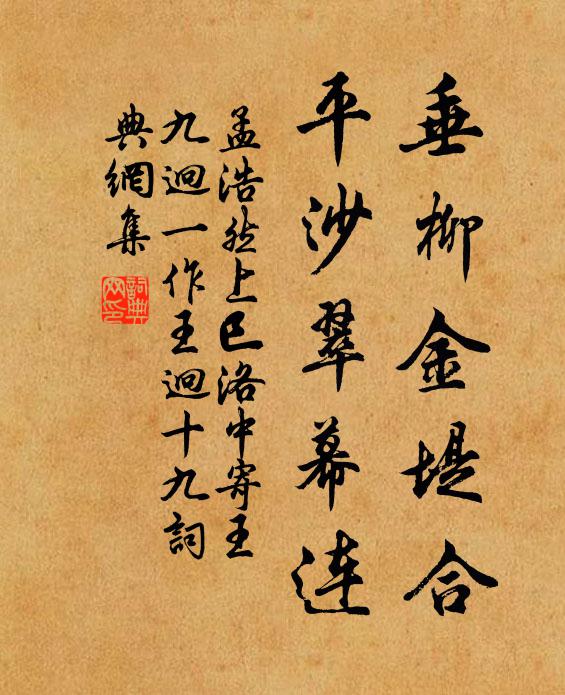 垂柳金堤合
平沙翠幕連
孟浩然上巳洛中寄王
九迥一作王迥十九詞
典網集
詞典
网印